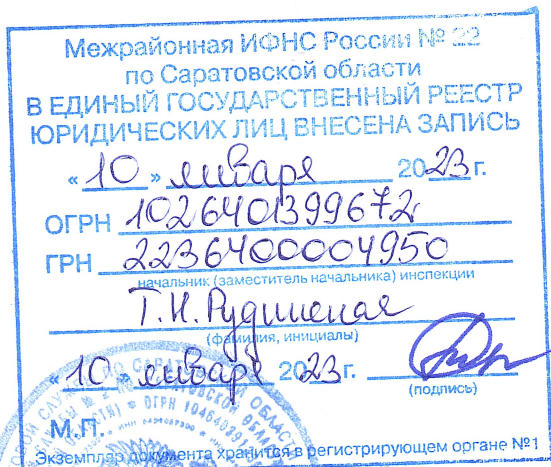 Межрайонная ИФНС России № 22
по Саратовской области
В ЕДИНЫЙ ГОСУДАРСТВЕННЫЙ РЕЕСТР
ЮРИДИЧЕСКИХ ЛИЦ ВНЕСЕНА ЗАПИСЬ
«10» января 2023г.
ОГРН 1026401399672
ГРН 2236400004950
начальник (заместитель начальника) инспекции
(фамилия, инициалы)
«10» января 2023г.
(подпись)
М.П.
Экземпляр документа хранится в регистрирующем органе №1